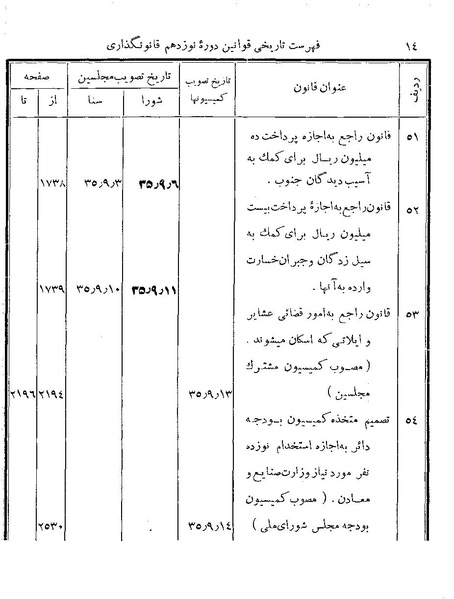 ١٤ فهرست تاریخی قوانین دورهٔ نوزدهم قانونگذاری
ردیف عنوان قانون تاریخ تصویب کمیسیونها تاریخ تصویب مجلسین صفحه
شورا سنا از تا
٥١ قانون راجع به‌اجازه پرداخت ده
میلیون ریال برای کمك به
آسیب دیدگان جنوب . ٣٥٫٩٫٦ ٣٥٫٩٫٣ ١٧٣٨
٥٢ قانون راجع به‌اجازهٔ پرداخت بیست
میلیون ریال برای کمك به
سیل زدگان و جبران خسارت
وارده به‌آنها . ٣٥٫٩٫١١ ٣٥٫٩٫١٠ ١٧٣٩
٥٣ قانون راجع به‌امور قضائی عشایر
و ایلاتی که اسکان میشوند .
( مصوب کمیسیون مشترك
مجلسین ) ٣٥٫٩٫١٣ ٢١٩٤ ٢١٩٦
٥٤ تصمیم متخذه کمیسیون بودجه
دائر به‌اجازه استخدام نوزده
نفر مورد نیاز وزارت صنایع و
معادن . ( مصوب کمیسیون
بودجه مجلس شورای‌ملی ) ٣٥٫٩٫١٤ ٢٥٣٠